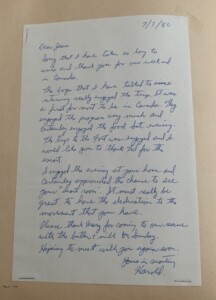 7/7/80
Dear Jean
Sorry that I have taken so long to
write and thank you for our weekend
in Canada.
The boys that I have talked to since
returning really enjoyed the trip. It was
a first for most to be in Canada. They
enjoyed the program very much and
Certainly enjoyed the food for evening.
The trip to the Fort was enjoyed and I
would like you to thank Ed for the
escort.
I enjoyed the evening at your home and
Certainly appreciated the chance to see
your room. It must really be
great to have the dedication to the
movement that you have.
Please thank Harry for coming to our
with the
Hoping to meet with you again soon.
Yours in Scouting
Harold